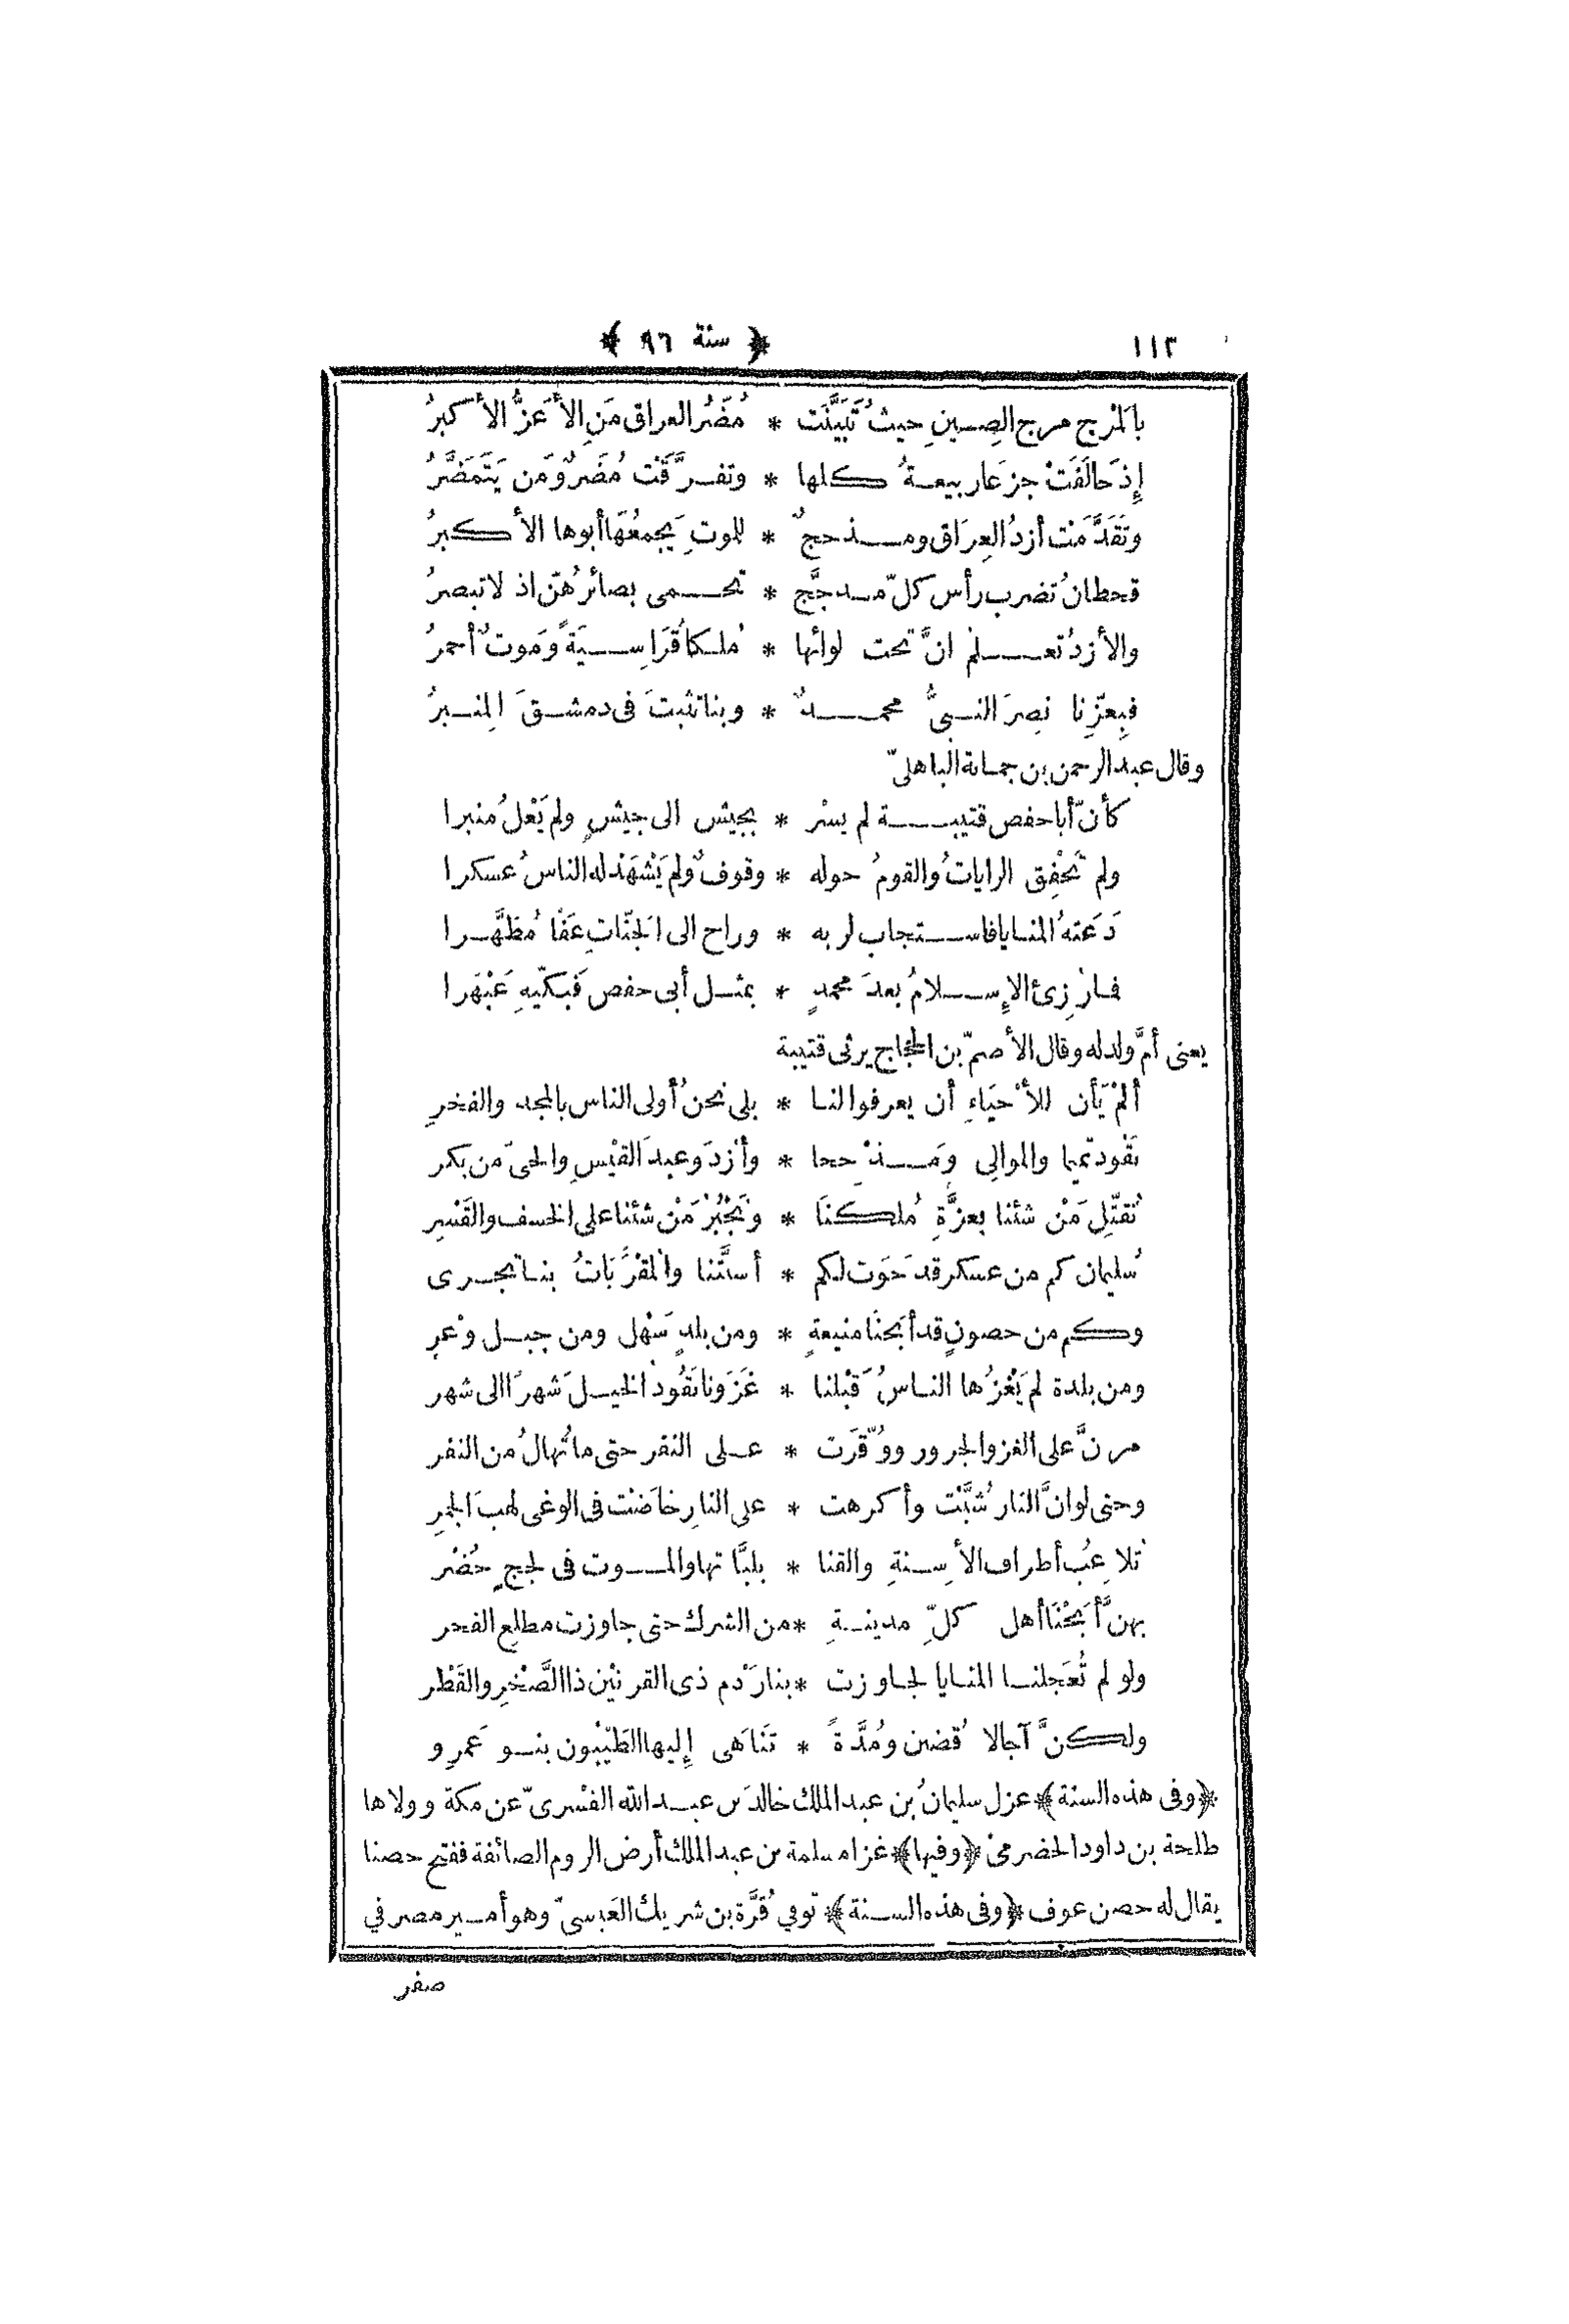 ١١٢ ﴿ سنة ٩٦ ﴾
بالمَرْج مرج الصِين حيثُ تَبَيَّنَت * مُضَرُ العراق مَنِ الأَعَزُّ الأكبرُ
إِذ حَالَفَتْ جزَعا ربيعةُ كلها * وتفرَّقَتْ مُضَرٌ وَمَن يَتَمَضَّرُ
وتَقَدَّمَتْ أزدُ العِرَاق ومذحجٌ * للموتِ يَجمعُهَا أبوها الأكبرُ
قحطانُ تضرب رأس كلّ مدجَّج * تحمى بصائرُهُنّ اذ لا تبصرُ
والأزدُ تعلمُ انَّ تحت لوائها * مُلكا قُرَاسِيَةً وَموتٌ أحمرُ
فبِعزِّنا نصِرَ النبىُّ محمدٌ * وبنا تثبتَ فى دمشقَ المِنبرُ
وقال عبد الرحمن بن جمانة الباهلىّ
كأنّ أبا حفص قتيبة لم يسْر * بجيش الى جيشٍ ولم يَعْلُ منبرا
ولم تَخْفِق الراياتُ والقومُ حوله * وقوفٌ ولم يَشْهَدْ له الناسُ عسكرا
دَعَتهُ المنايا فاستجاب لربه * وراح الى الجَنّاتِ عَفًّا مُطَهَّرا
فما رُزِئ الإِسلامُ بعدَ محمدٍ * بمثل أبى حفص فَبَكّيهِ عَبْهَرا
يعنى أمَّ ولد له وقال الأصمّ بن الحجّاج يرثى قتيبة
ألَمْ يَأن للأَحْيَاءِ أن يعرفوا لنا * بلى نحنُ أولى الناس بالمجد والفخرِ
نَقُود تميما والموالِى ومَذْحجا * وأزدَ وعبدَ القَيْسِ والحىّ من بكر
نُقَتِّل مَنْ شئنا بعزَّةِ مُلكنَا * ونَجْبُرُ مَنْ شئنا على الخسف والقَسْر
سُليمان كم من عسكر قد حَوَت لكم * أسنَّتنا والمُقْرَبَاتُ بنا تجرى
وكم من حصونٍ قد أبَحنَا منيعةٍ * ومن بلدٍ سَهْل ومن جبل وعْر
ومن بلدة لم يَغْزُها الناسُ قَبْلنا * غَزَونا نَقُودُ الخيلَ شهرًا الى شهر
مرنَّ على الغزو الجرور ووُقّرَت * على النفر حتى ما تُهالُ من النفر
وحتى لو انَّ النار شُبَّتْ وأكرهت * على النارِ خاضَتْ فى الوغى لهبَ الجمرِ
تُلاعِبُ أطراف الأسِنةِ والقنا * بلبَّاتها والموت فى لججٍ خُضْر
بهنَّ أَبَحْنَا أهل كلِّ مدينةِ * من الشرك حتى جاوزت مطلع الفجر
ولو لم تُعَجلنا المنايا لجاوزت * بنا رَدْم ذى القرنيْن ذا الصَّخْرِ والقَطْر
ولكنَّ آجالا قُضين ومُدَّةً * تَنَاهَى إِليها الطَيّبُون بنو عَمرِو
﴿وفى هذه السنة﴾ عزل سليمانُ بن عبد الملك خالدَ بن عبد الله القسرىّ عن مكة وولاها
طلحة بن داود الحضرمىّ ﴿وفيها﴾ غزا مسلمة بن عبد الملك أرض الروم الصائفة ففتح حصنا
يقال له حصن عوف ﴿وفى هذه السنة﴾ توفي قُرَّة بن شريك العَبسىّ وهو أمير مصر في
صفر